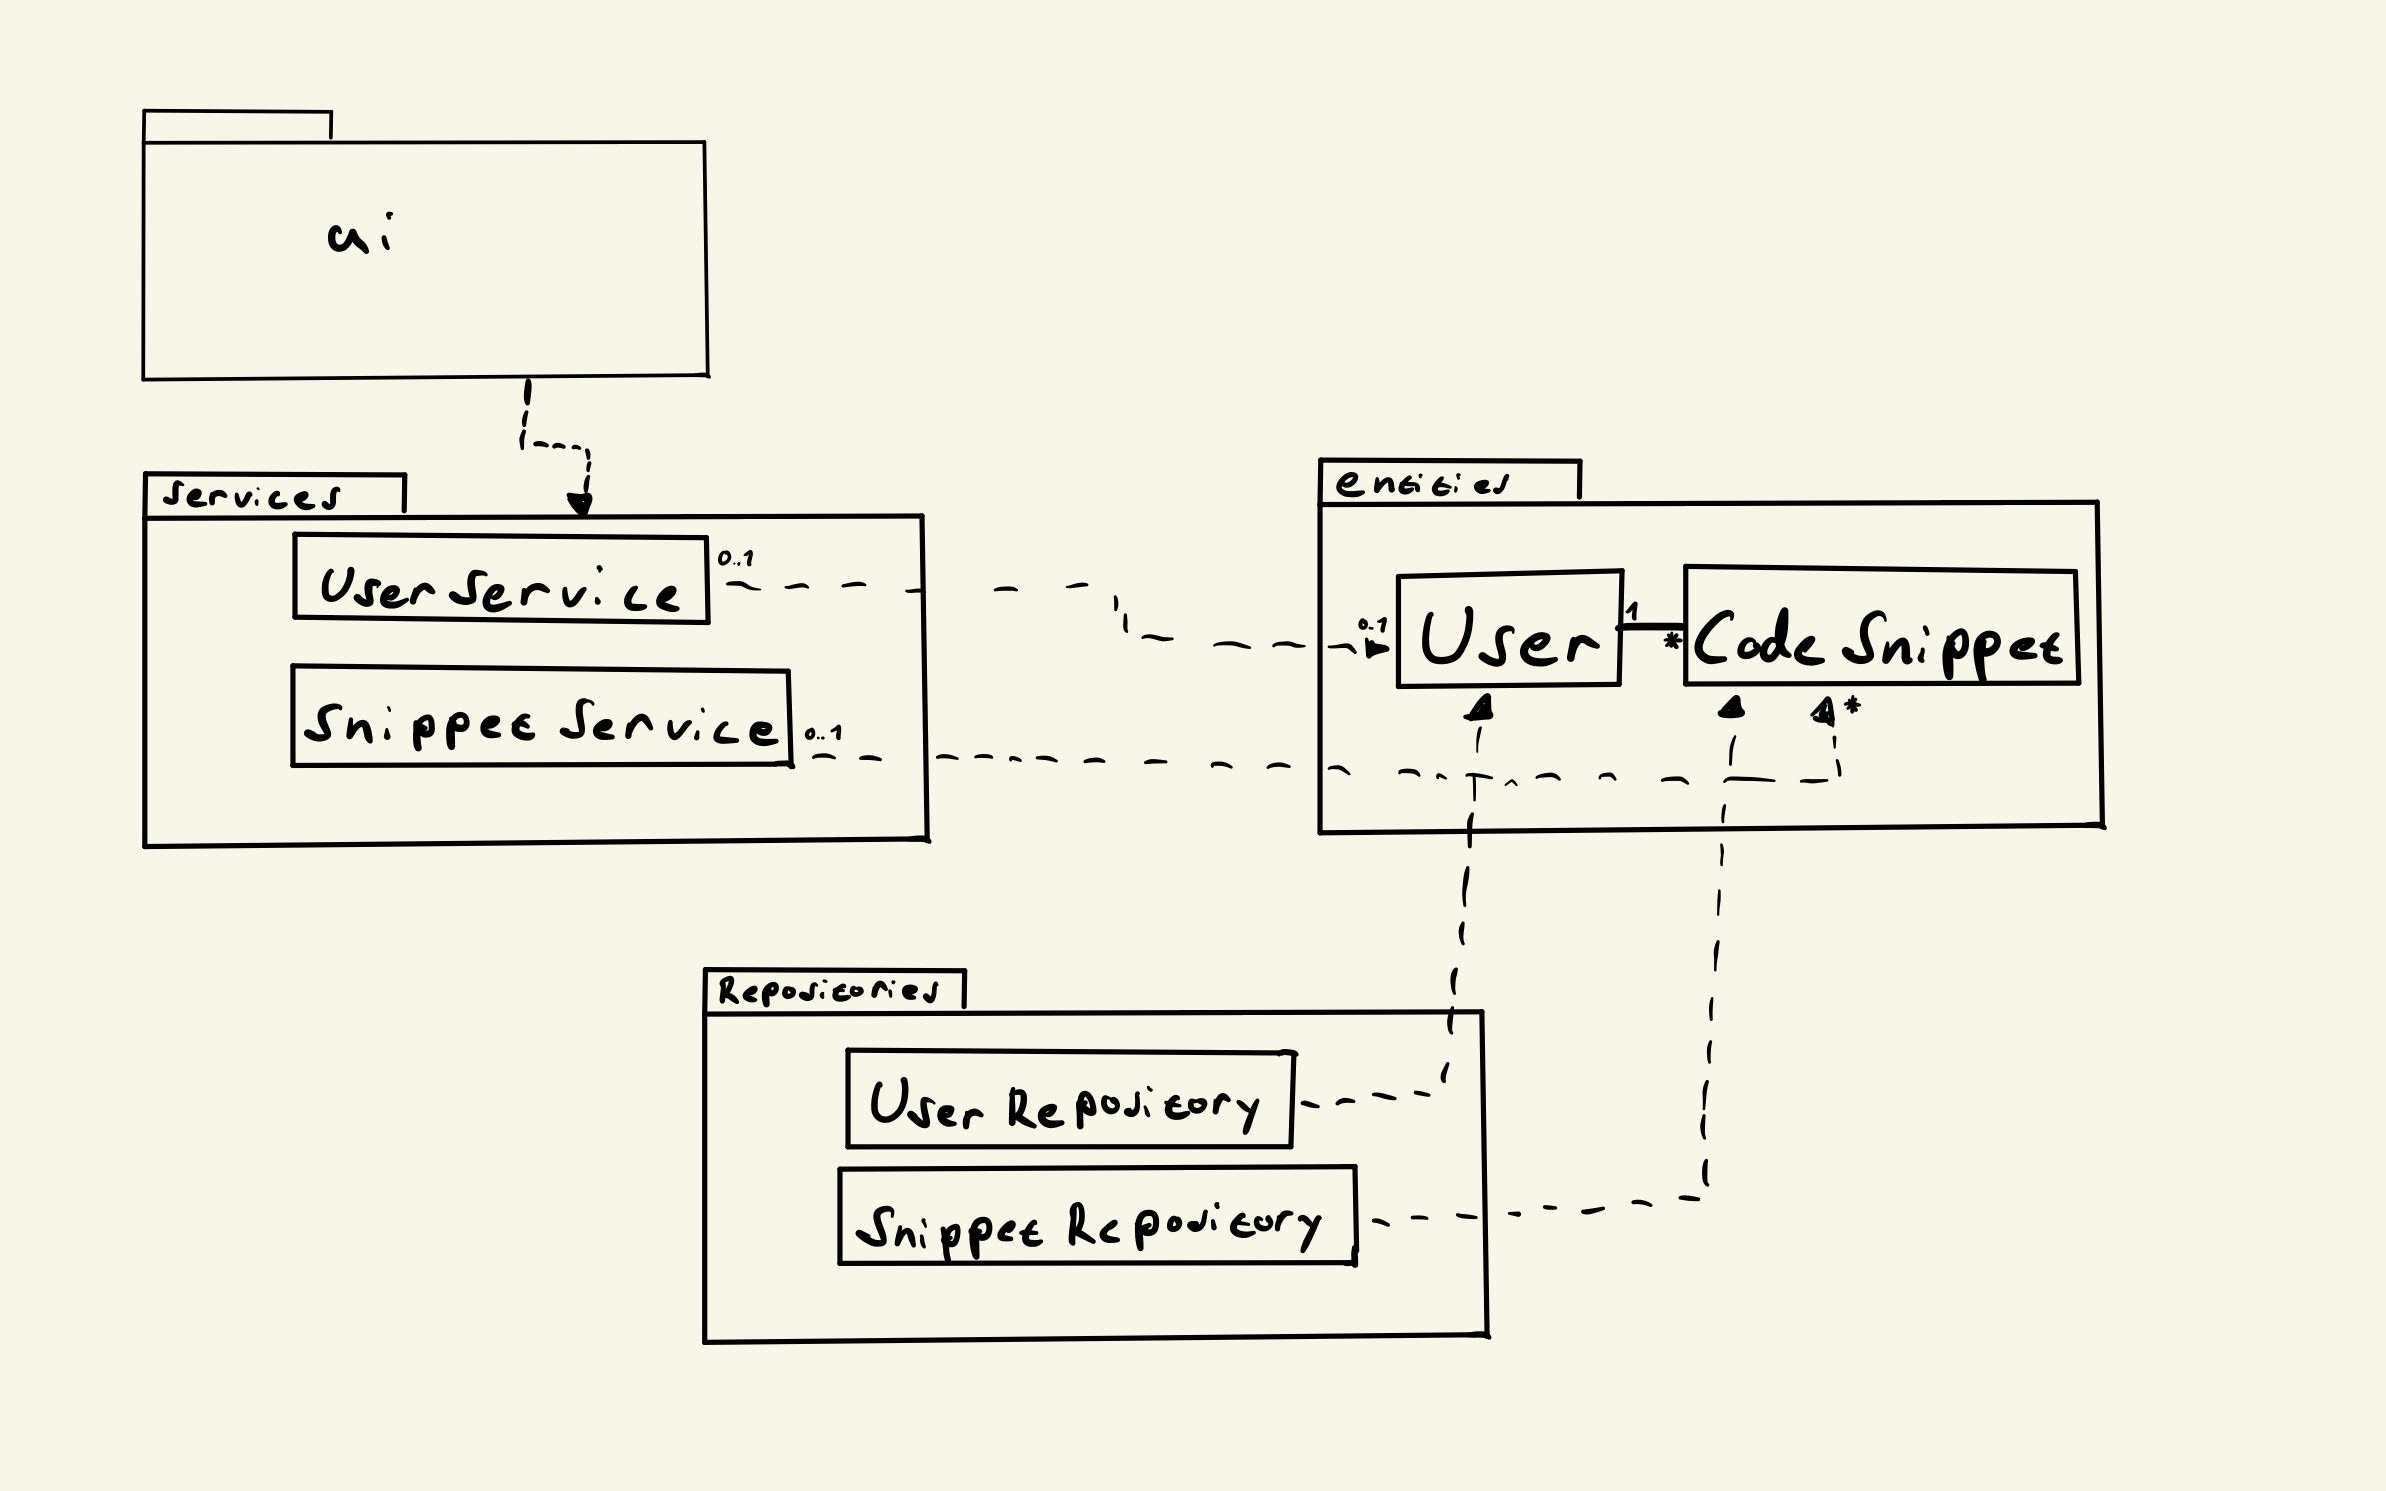 ai
Services
User Service
0..1
Snippet Service
0..1
entities
0..1
User
1
*
Code Snippet
*
Repositories
User Repository
Snippet Repository